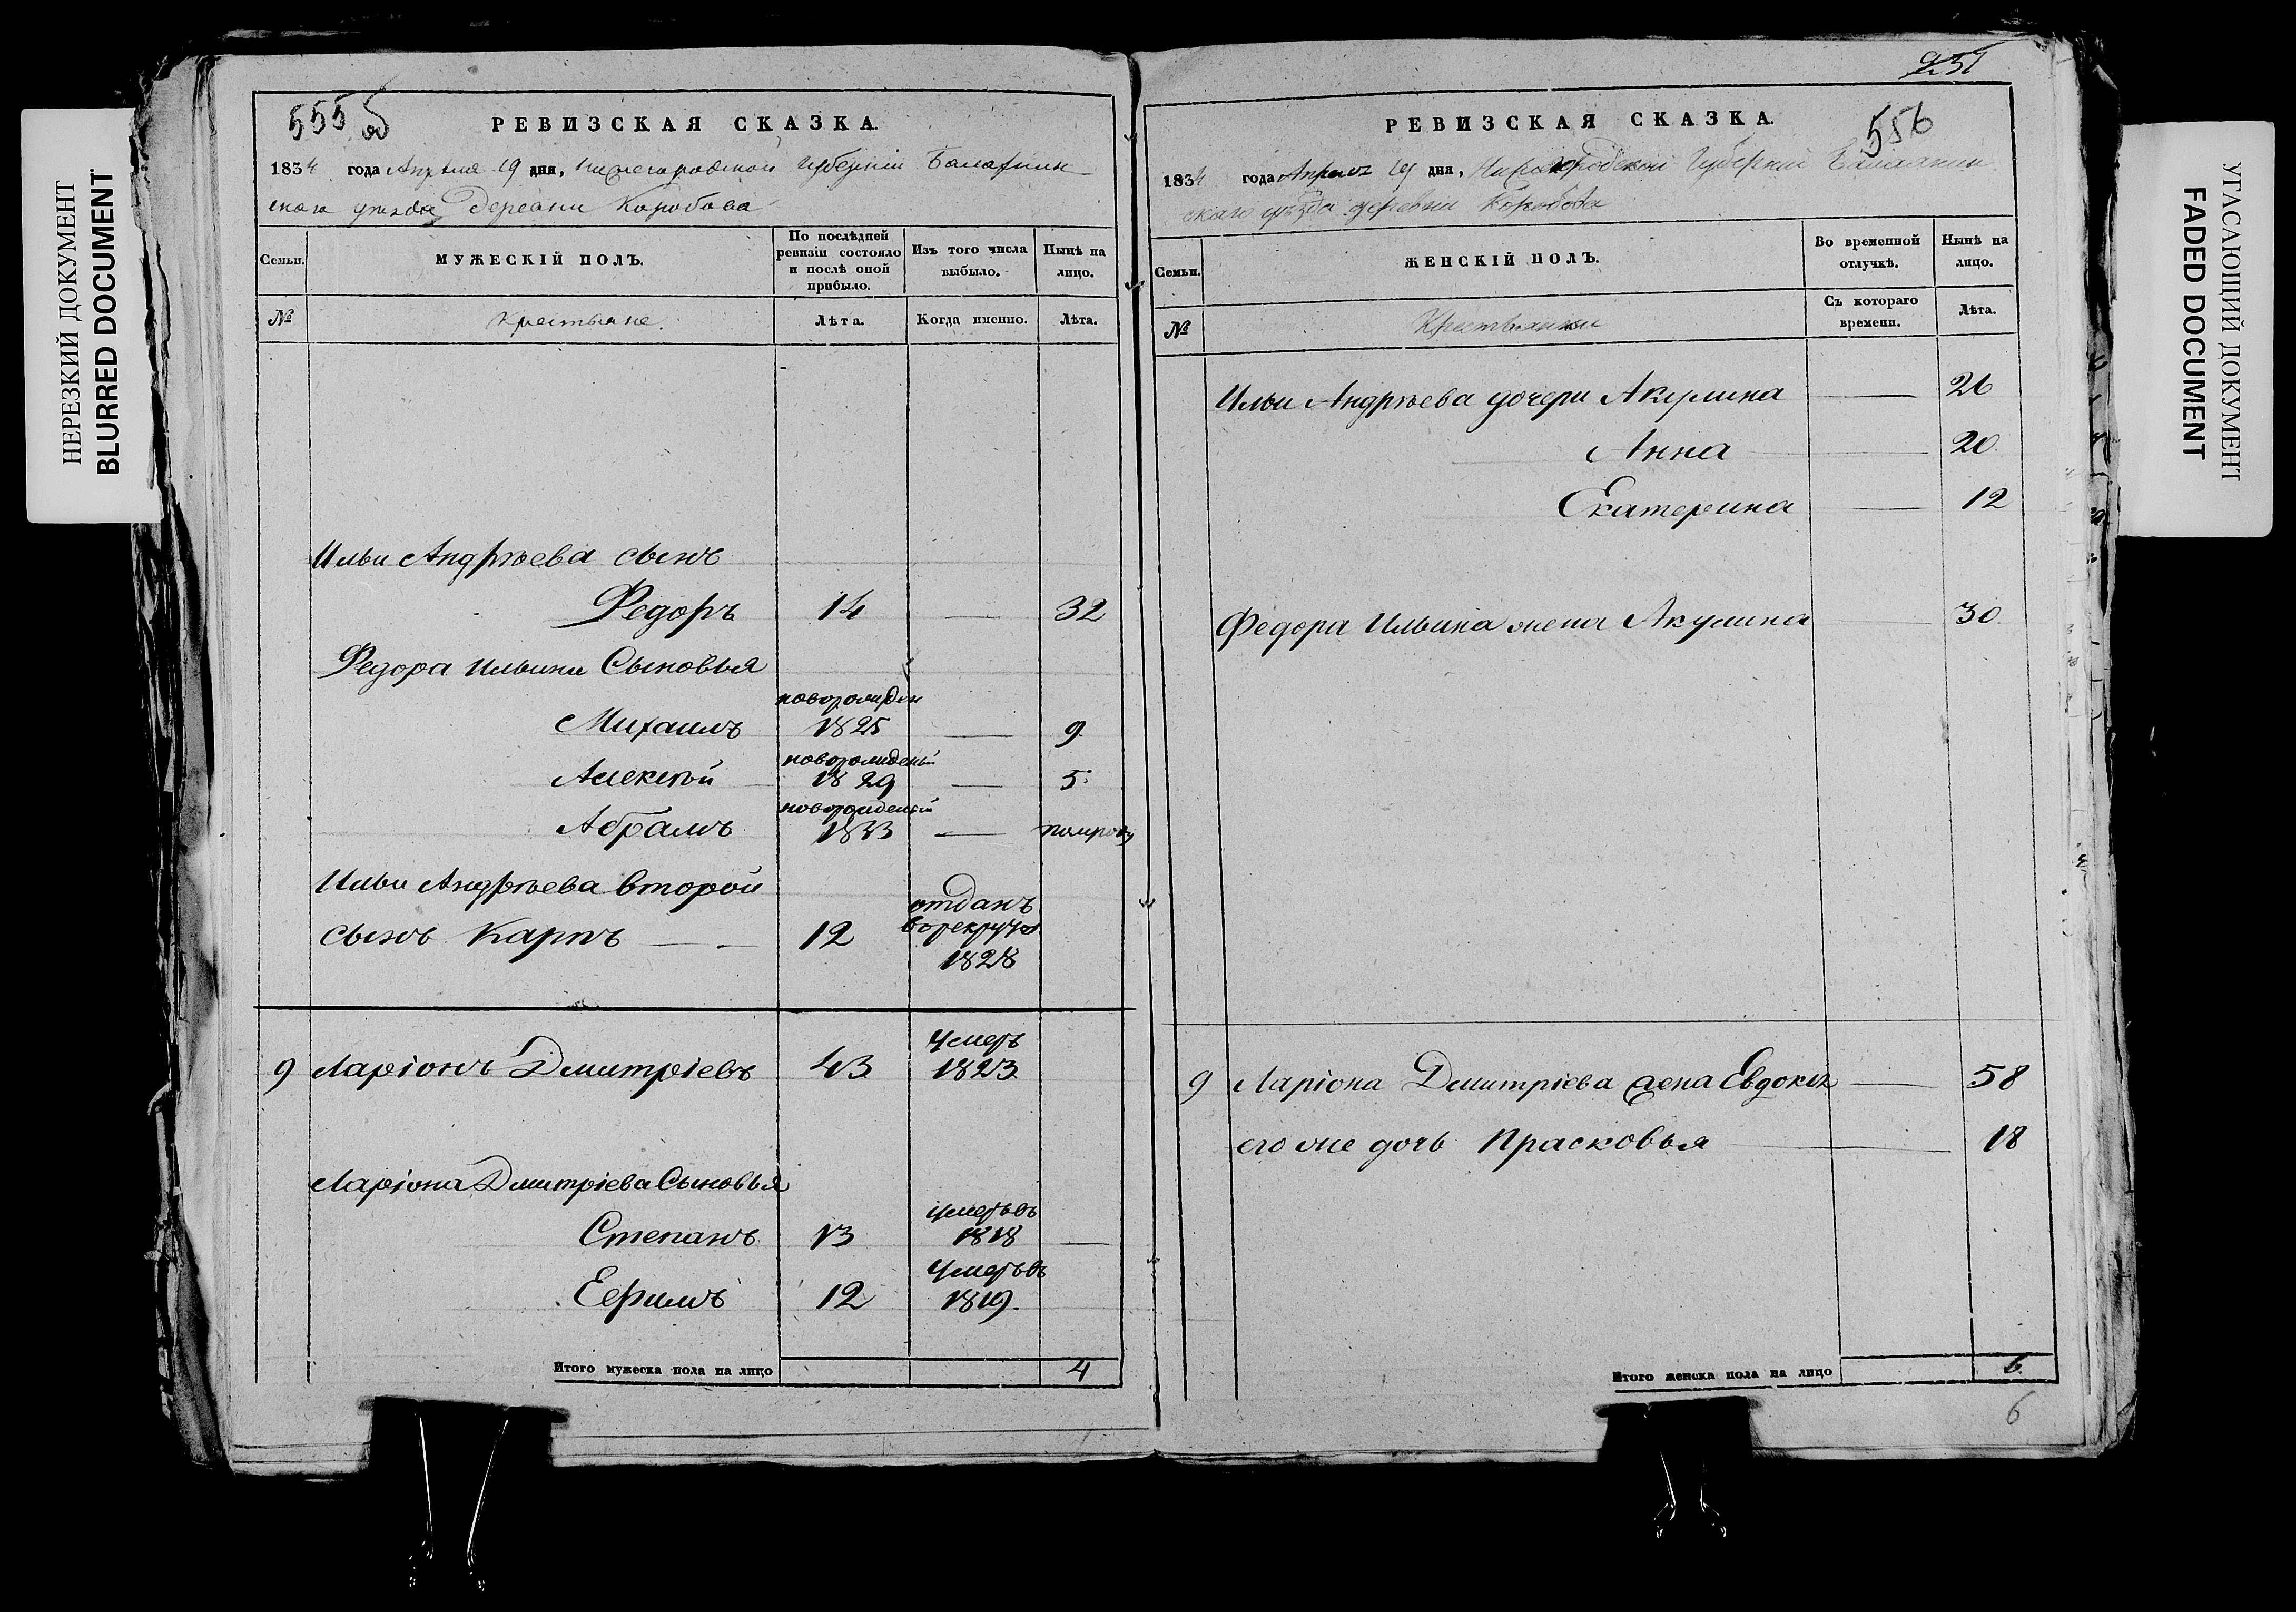 НЕРЕЗКИЙ ДОКУМЕНТ
BLURRED DOCUMENT
555 об
РЕВИЗСКАЯ СКАЗКА.
1834 года Апреля 19 дня, Нижегородской Губерніи Балахнин
скаго уѣзда деревни Коробова
Семьи.
МУЖЕСКІЙ ПОЛЪ.
По послѣдней ревизіи состояло и послѣ оной прибыло.
Изъ того числа выбыло.
Нынѣ на лицо.
№
Крестьяне.
Лѣта.
Когда именно.
Лѣта.
Ильи Андрѣева сынъ
Федоръ 14 — 32
Федора Ильина Сыновья
новорожден
Михаилъ 1825 — 9
новорожденый
Алексѣй 1829 — 5
новорожденый
Абрамъ 1833 — полгоду
Ильи Андрѣева второй
сынъ Карпъ — — 12
отданъ
в рекруты
1828
9 Ларіонъ Дмитріевъ 43
умеръ
1823
Ларіона Дмитріева Сыновья
Степанъ 13
умеръ въ
1818 —
Ефимъ 12
умеръ въ
1819.
Итого мужеска пола на лицо 4
556
РЕВИЗСКАЯ СКАЗКА.
1834 года Апреля 19 дня, Нижегородской Губерніи Балахнин
скаго уѣзда деревни Коробова
Семьи.
ЖЕНСКІЙ ПОЛЪ.
Во временной отлучкѣ.
Нынѣ на лицо.
№
Крестьянки
Съ котораго времени.
Лѣта.
Ильи Андрѣева дочери Акулина — 26
Анна — 20
Екатерина — 12
Федора Ильина жена Акулина — 30
9 Ларіона Дмитріева жена Евдокия — 58
его же дочь Прасковья — 18
Итого женска пола на лицо 6.
6
УГАСАЮЩИЙ ДОКУМЕНТ
FADED DOCUMENT